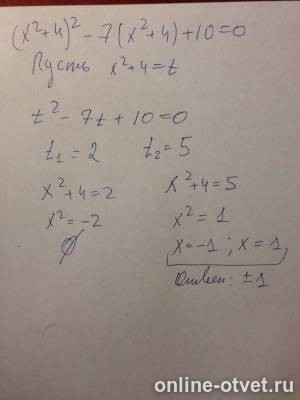 (x²+4)² - 7(x²+4)+10=0
Пусть x²+4=t
t²-7t+10=0
t₁=2 t₂=5
x²+4=2 x²+4=5
x²=-2 x²=1
∅ x=-1; x=1
Ответ: ±1
online-otvet.ru